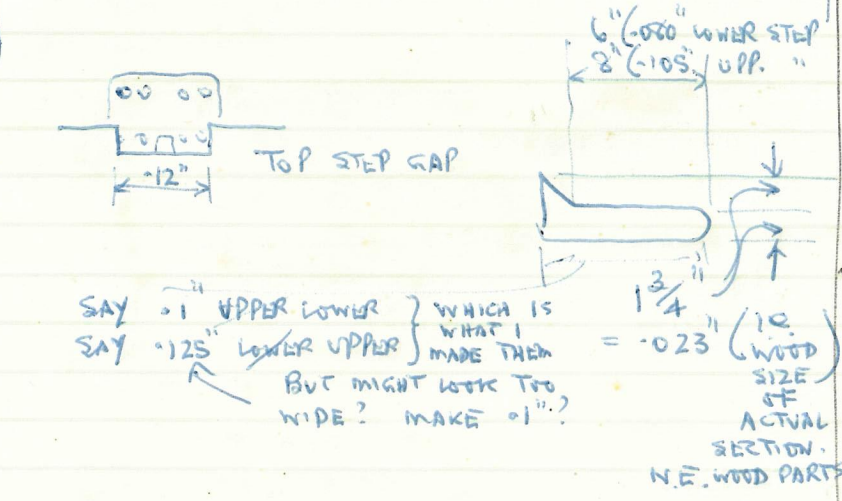 6" (.080" LOWER STEP
8" (.105" UPP. "
TOP STEP GAP
.12"
1 3/4"
= .023" (I.E. WOOD SIZE OF ACTUAL SECTION.
N.E. WOOD PARTS
SAY .1" UPPER LOWER } WHICH IS
SAY .125" LOWER UPPER } WHAT I MADE THEM
BUT MIGHT LOOK TOO
WIDE? MAKE .1"?